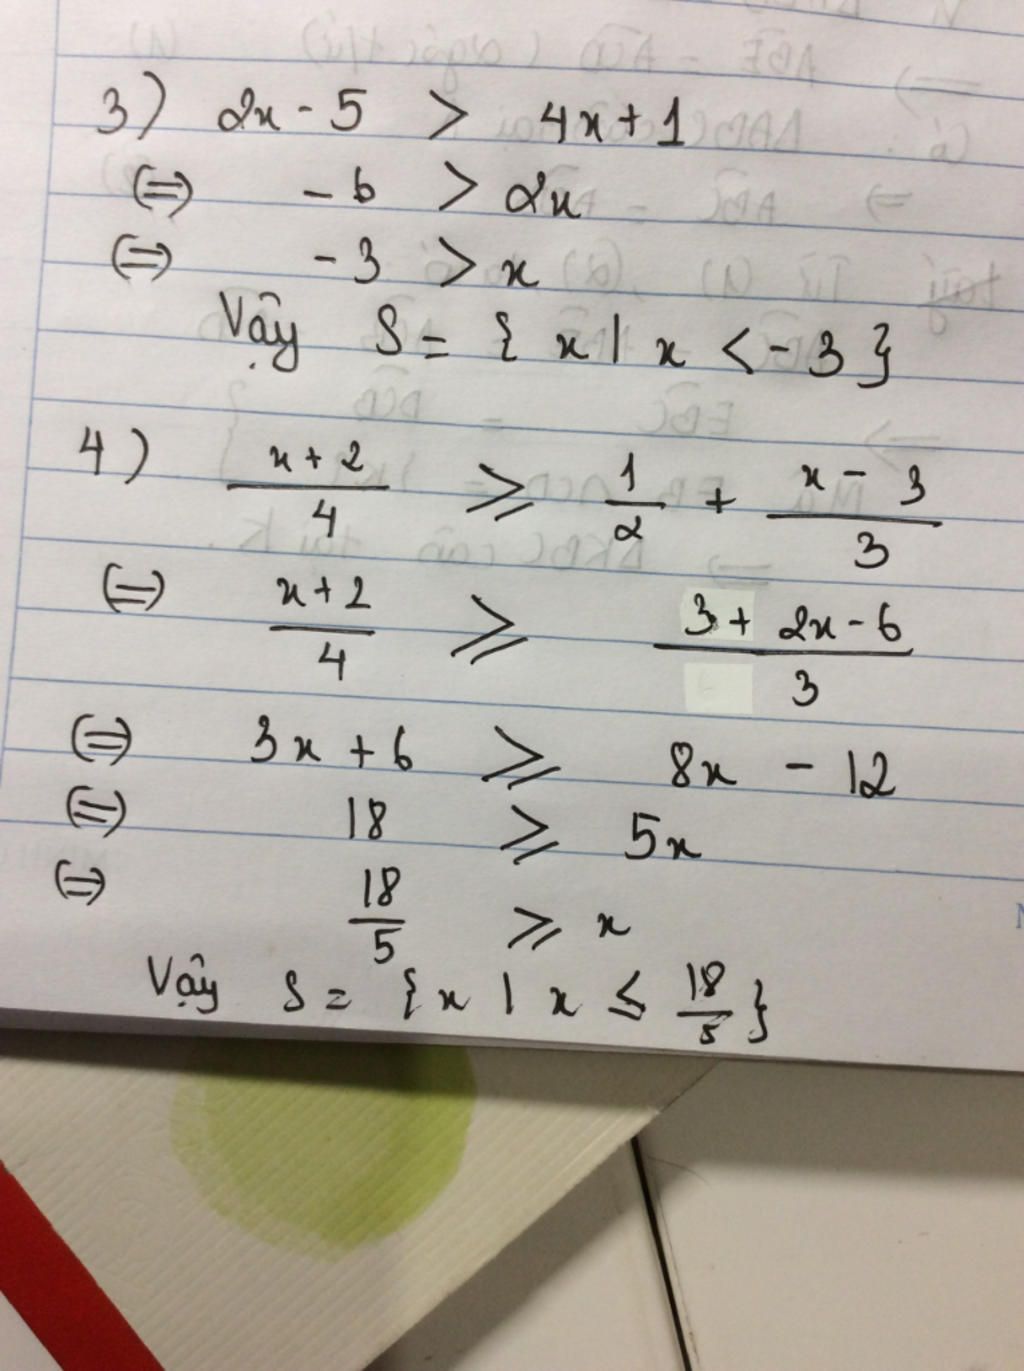 3) 2x - 5 > 4x + 1
(=) - 6 > 2x
(=) - 3 > x
Vậy S = { x | x < - 3 }
4) x + 2 / 4 ⩾ 1 / 2 + x - 3 / 3
(=) x + 2 / 4 ⩾ 3 + 2x - 6 / 3
(=) 3x + 6 ⩾ 8x - 12
(=) 18 ⩾ 5x
(=) 18 / 5 ⩾ x
Vậy S = { x | x ≤ 18 / 5 }